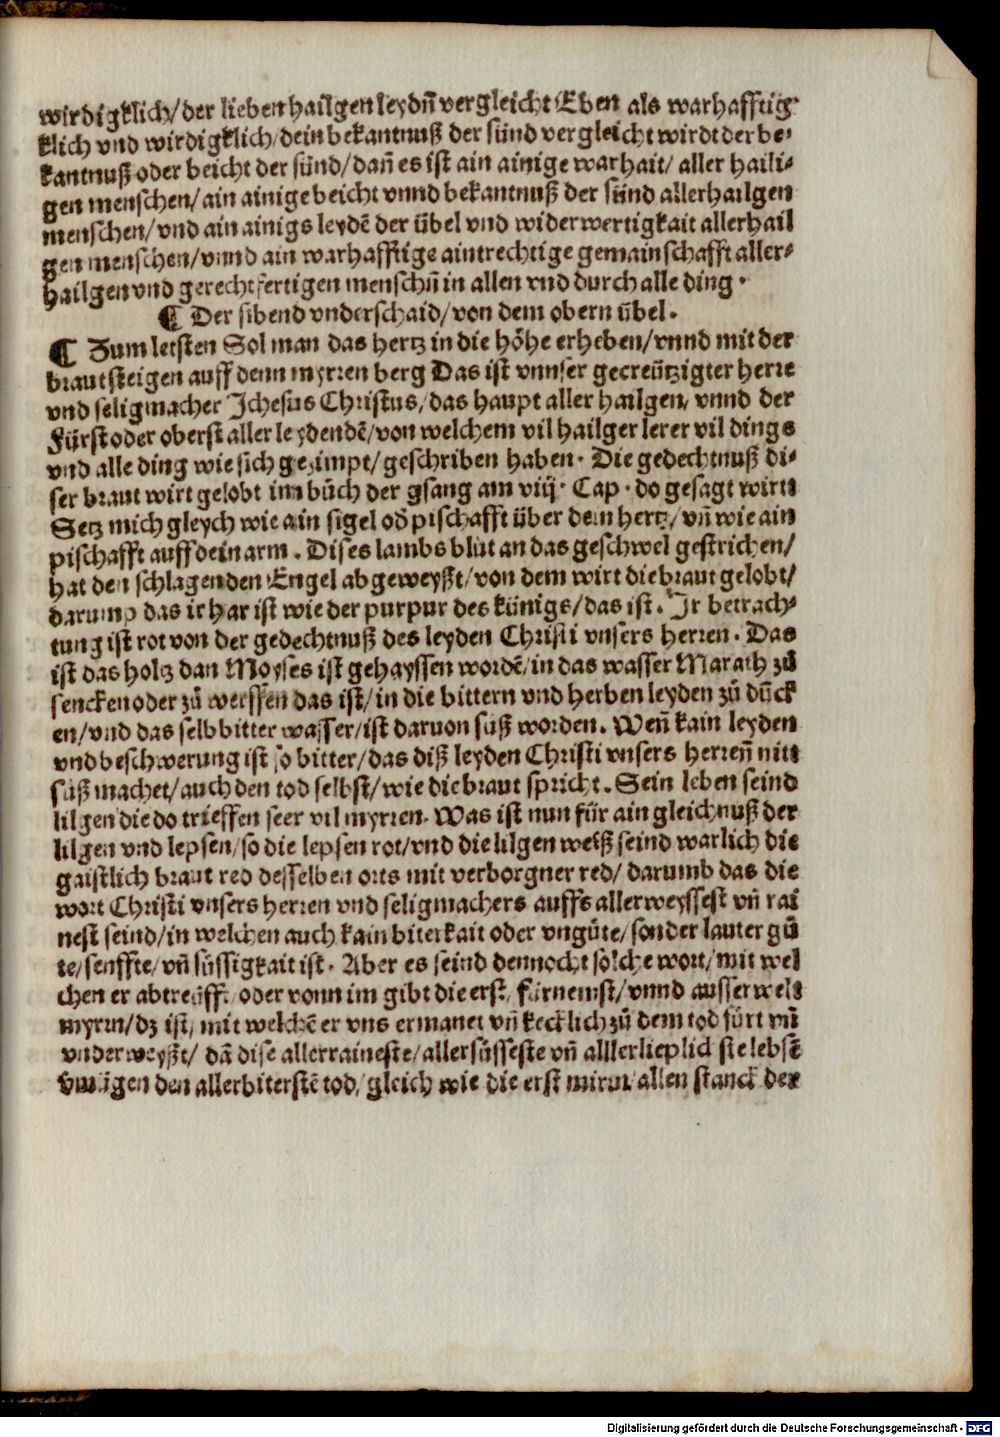 wirdigklich/der lieben hailgen leydn̄ vergleicht Eben als warhafftig
klich vnd wirdigklich/dein bekantnuß der sünd vergleicht wirdt der be-
kantnuß oder beicht der sünd/dañ es ist ain ainige warhait/ aller haili-
gen menschen/ain ainige beicht vnnd bekantnuß der sünd allerhailgen
menschen/vnd ain ainigs leydē der übel vnd widerwertigkait allerhail
gen menschen/vnnd ain warhafftige aintrechtige gemainschafft aller-
hailgen vnd gerechtfertigen menschn̄ in allen vnd durch alle ding.
¶ Der sibend vnderschaid/von dem obern übel.
¶ Zum letsten Sol man das hertz in die höhe erheben/vnnd mit der
braut steigen auff denn myrren berg Das ist vnnser gecreütztigter herre
vnd seligmacher Jchesus Christus/das haupt aller hailgen/vnnd der
Fürst oder oberst aller leydendē/von welchem vil hailger lerer vil dings
vnd alle ding wie sich gezimpt/geschriben haben. Die gedechtnuß di-
ser braut wirt gelobt im bůch der gsang am viij. Cap. do gesagt wirtt
Setz mich gleych wie ain sigel od̕ pischafft über dein hertz/vñ wie ain
pischafft auff dein arm. Dises lambs blůt an das geschwel gestrichen/
hat den schlagenden Engel abgeweyßt/von dem wirt die braut gelobt/
darump das ir har ist wie der purpur des künigs/das ist. Jr betrach-
tung ist rot von der gedechtnuß des leyden Christi vnsers herren. Das
ist das holtz dan Moyses ist gehayssen wordē/in das wasser Marath zů
sencken oder zů werffen das ist/in die bittern vnd herben leyden zů důck
en/vnd das selb bitter wasser/ist daruon süß worden. Weñ kain leyden
vnd beschwerung ist so bitter/das diß leyden Christi vnsers herreñ nitt
süß machet/auch den tod selbst/wie die braut spricht. Sein leben seind
lilgen die do trieffen seer vil myrren. Was ist nun für ain gleichnuß der
lilgen vnd lepsen/so die lepsen rot/vnd die lilgen weiß seind warlich die
gaistlich braut red desselben orts mit verborgner red/ darumb das die
wort Christi vnsers herren vnd seligmachers auffs allerweyssest vñ rai
nest seind/in welchen auch kain biterkait oder vngüte/sonder lauter gü
te/senffte/vñ süssigkait ist. Aber es seind dennocht solche wort/mit wel
chen er abtreüfft/oder vonn im gibt die erst/fürnemst/vnnd ausserwelt
myrrn/dz ist/mit welchē er vns ermanet vñ kecklich zů dem tod fürt vñ
vnderweyßt/ dā dise allerraineste/allersüsseste vñ alllerlieplich sie lebsē
vmügen den allerbiterstē tod/gleich wie die erst mirrn allen stanck der
Digitalisierung gefördert durch die Deutsche Forschungsgemeinschaft - DFG